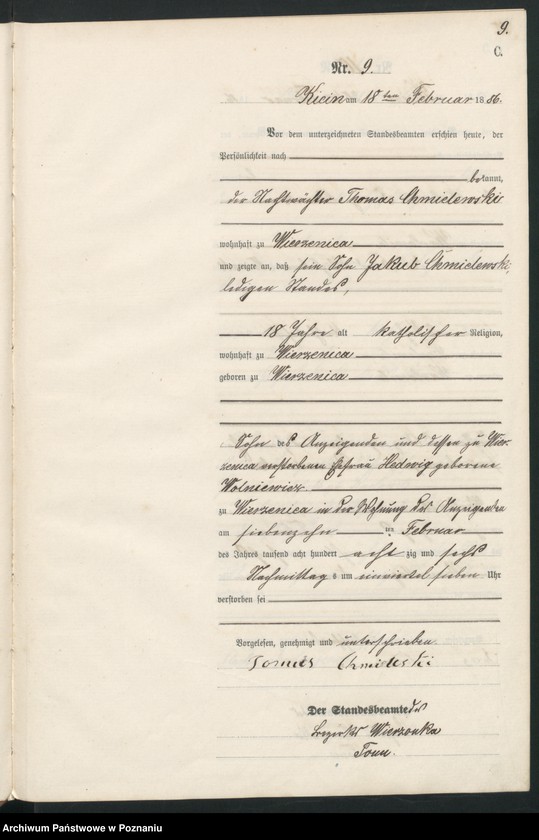 9.
C.
Nr. 9.
Kicin am 18ten Februar 1886.
Vor dem unterzeichneten Standesbeamten erschien heute, der
Persönlichkeit nach
bekannt,
der Nachtwächter Thomas Chmielewski
wohnhaft zu Wierzenica
und zeigte an, daß sein Sohn Jakub Chmielewski,
ledigen Standes,
18 Jahre alt katholischer Religion,
wohnhaft zu Wierzenica
geboren zu Wierzenica
Sohn des Anzeigenden und dessen zu Wier-
zenica verstorbenen Ehefrau Hedwig geborene
Wolniewicz
zu Wierzenica in der Wohnung des Anzeigenden
am siebenzehn ten Februar
des Jahres tausend acht hundert achtzig und sechs
Nachmittags um einviertel sieben Uhr
verstorben sei
Vorgelesen, genehmigt und unterschrieben
Tomas Chmileski
Der Standesbeamte des
Bezirks Wierzonka
Tonn.
Archiwum Państwowe w Poznaniu